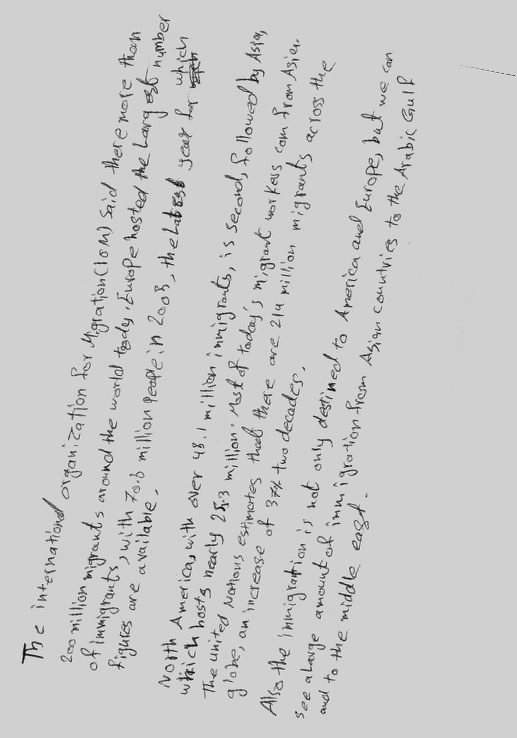 The international organization for Migration (IOM) said there more than
200 million migrants around the world today. Europe hosted the Largest number
of immigrants, with 70.6 million people in 2005, the Latest year for which
figures are available.
North America, with over 45.1 million immigrants, is second, followed by Asia,
which hosts nearly 25.3 million. Most of today's migrant workers com from Asia.
The united Nations estimates that there are 214 million migrants across the
globe, an increase of 37% two decades.
Also the immigration is not only destined to America and Europe, but we can
see a large amount of immigration from Asian countries to the Arabic Gulf
and to the middle east.